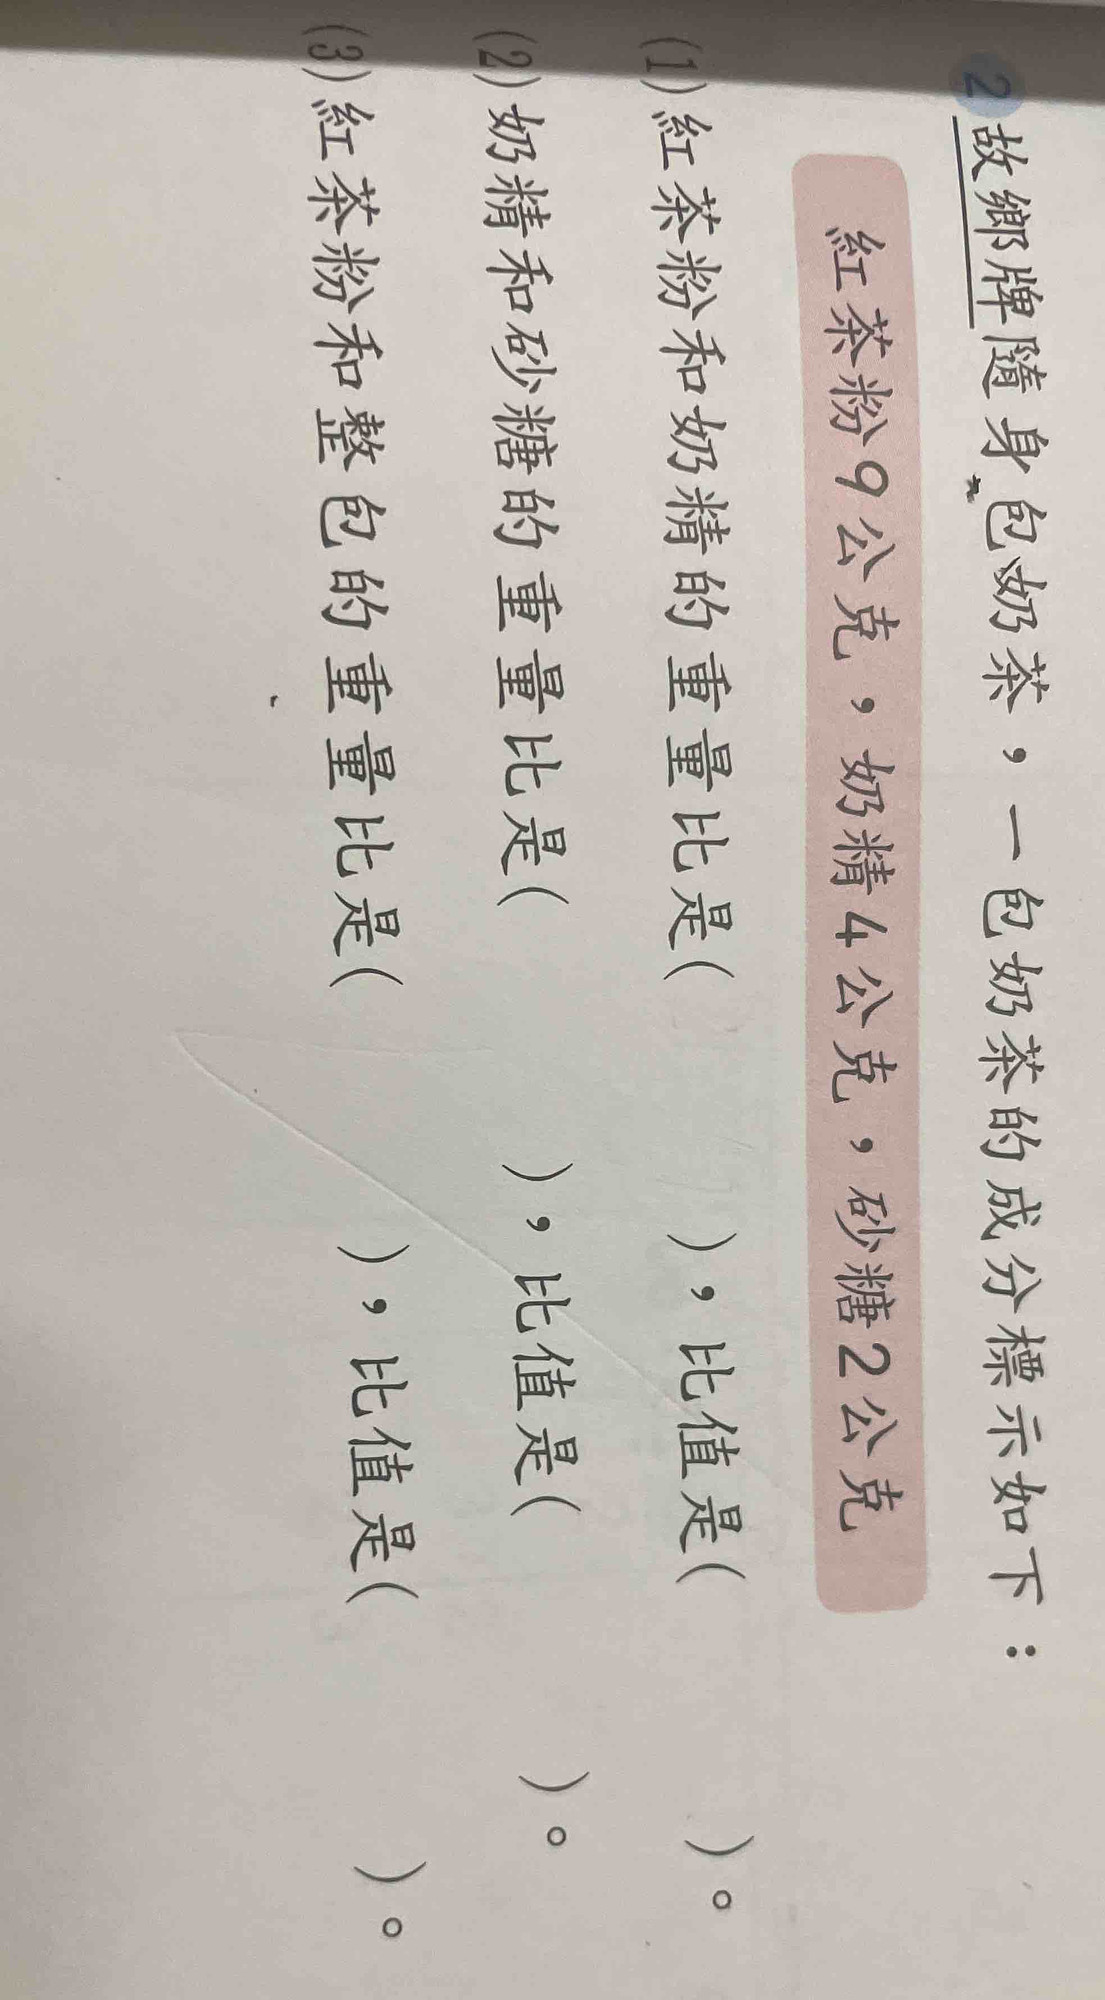 2 故鄉牌隨身包奶茶，一包奶茶的成分標示如下：
紅茶粉9公克，奶精4公克，砂糖2公克
(1)紅茶粉和奶精的重量比是(　　　)，比值是(　　　)。
(2)奶精和砂糖的重量比是(　　　)，比值是(　　　)。
(3)紅茶粉和整包的重量比是(　　　)，比值是(　　　)。